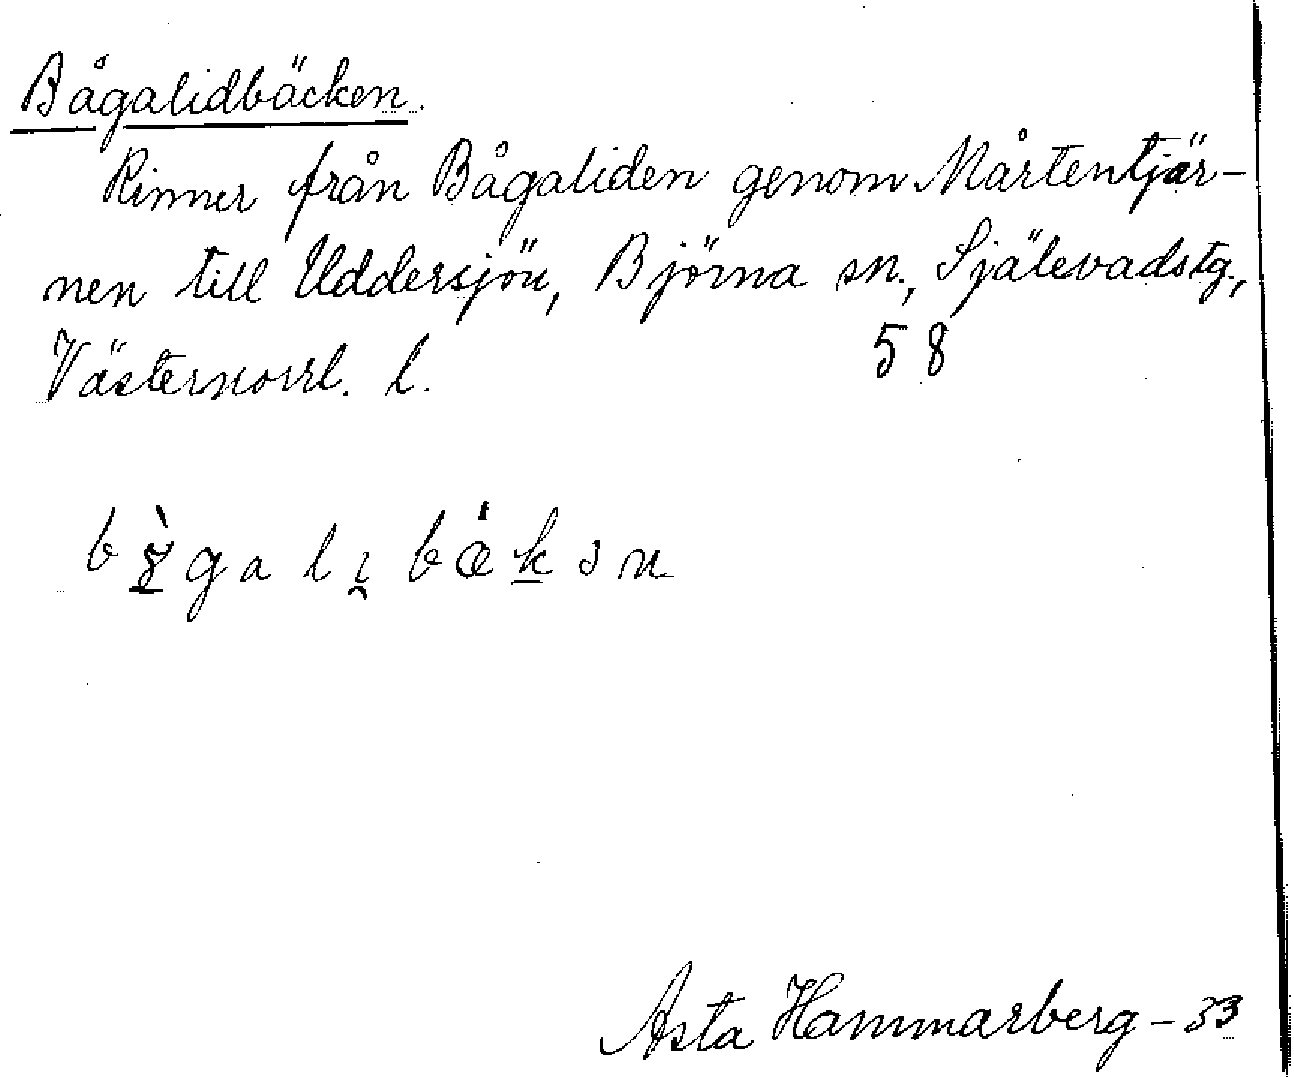 Bågalidbäcken.
Rinner från Bågaliden genom Mårtentjär-
nen till Uddersjön, Björna sn., Själevadstg.,
Västernorrl. l. 58
Asta Hammarberg - 33